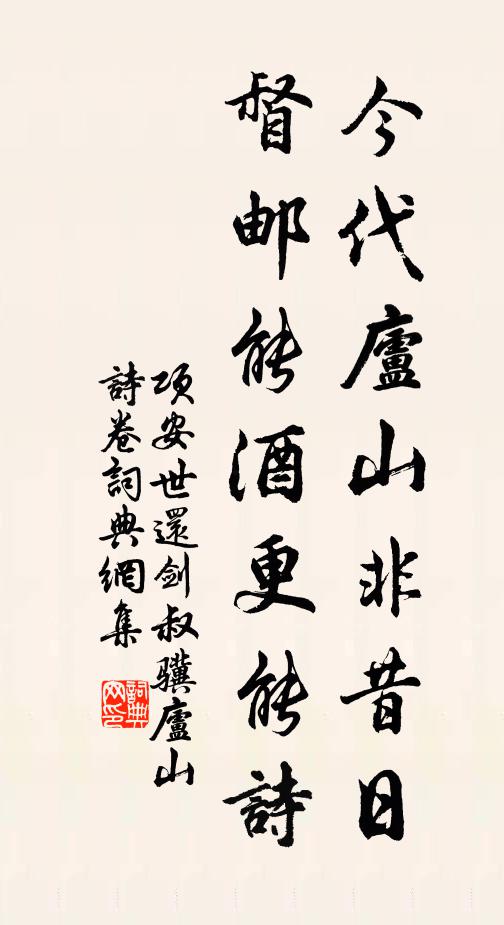 今代廬山非昔日
督邮能酒更能詩
項安世還劍叔驥廬山
詩卷詞典網集
詞典网印